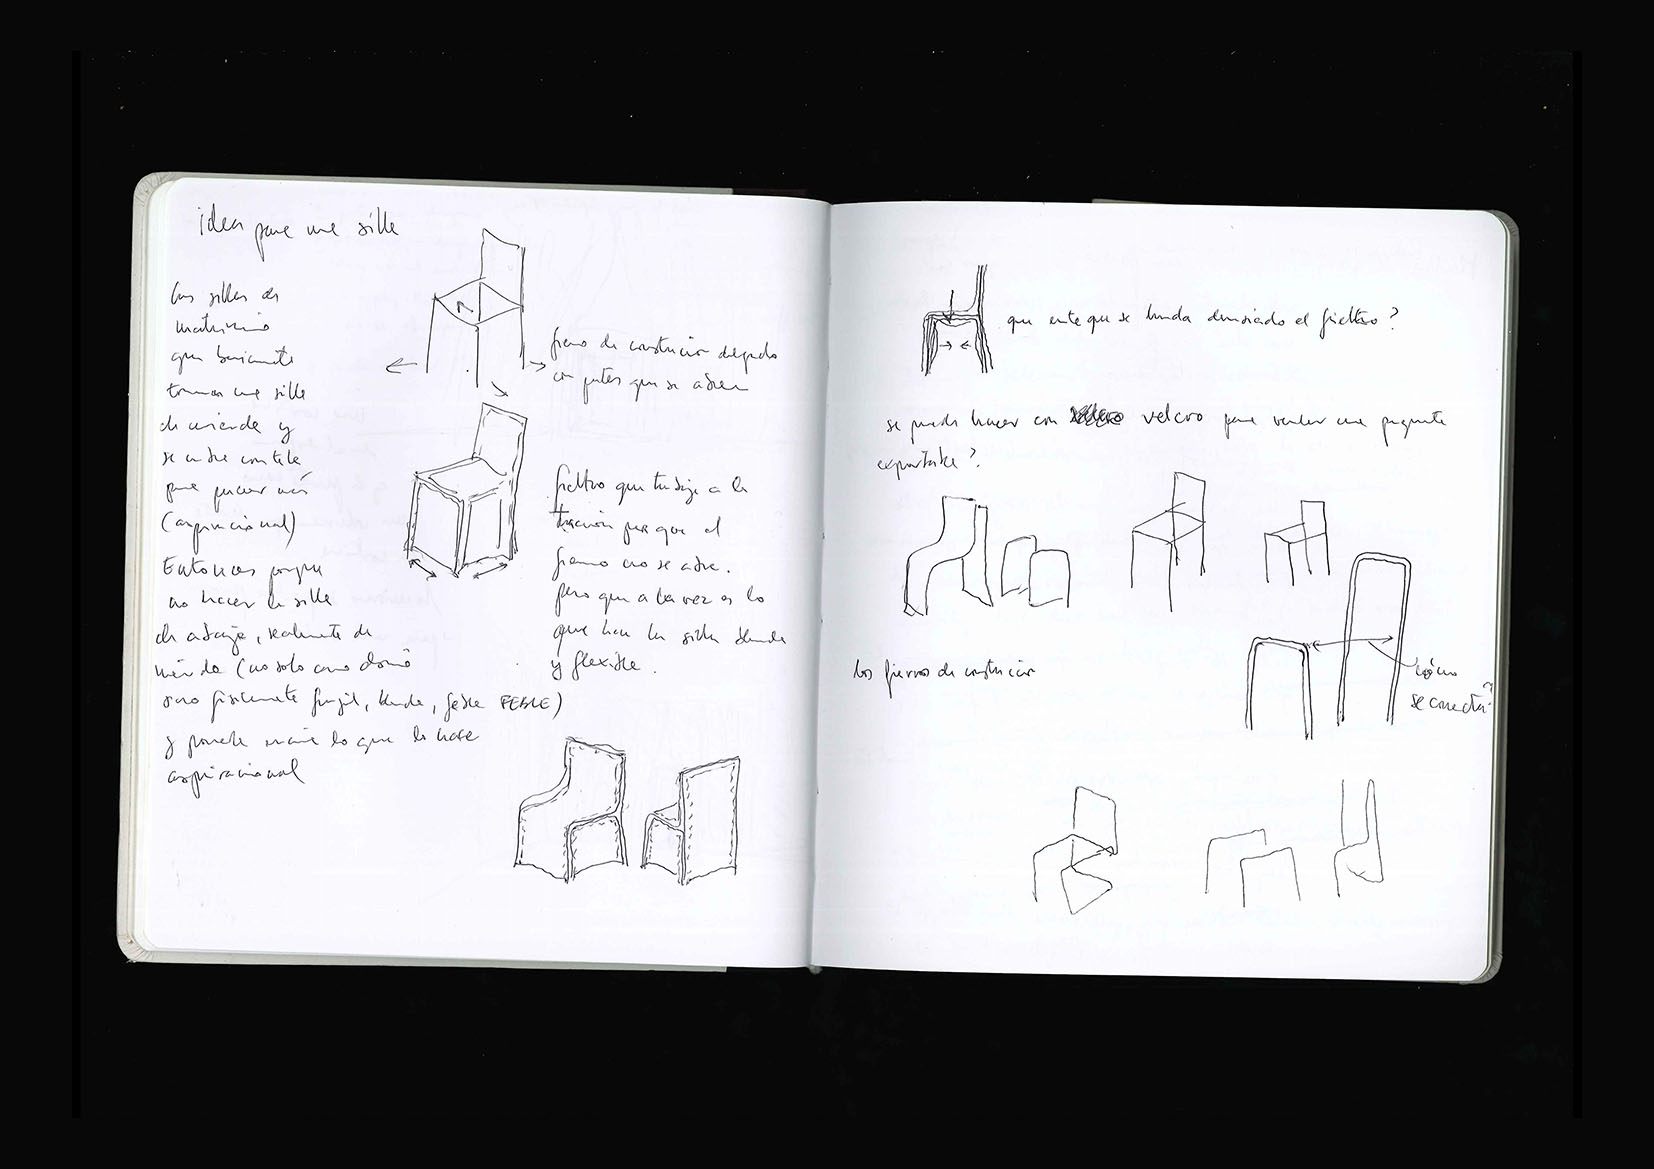 idea para una silla
Las sillas de
matrimonio
que basicamente
toman una silla
de mierda y
se cubre con tela
para parecer más
(aspiracional)
Entonces porque
no hacer la silla
de abajo, realmente de
mierda (no solo como
sino fisicamente fragil, blanda, feble FEBLE)
y ponerle encima lo que la hace
aspiracional
fierro de construcion delgado
con patas que se abren
fieltro que trabaje a la
tracción para que el
fierro no se abra.
pero que a la vez es lo
que hace la silla blanda
y flexible.
que evite que se hunda demasiado el fieltro?
se puede hacer con velcro para vender una paquete
exportable?
los fierros de construcion
cómo
se conecta?